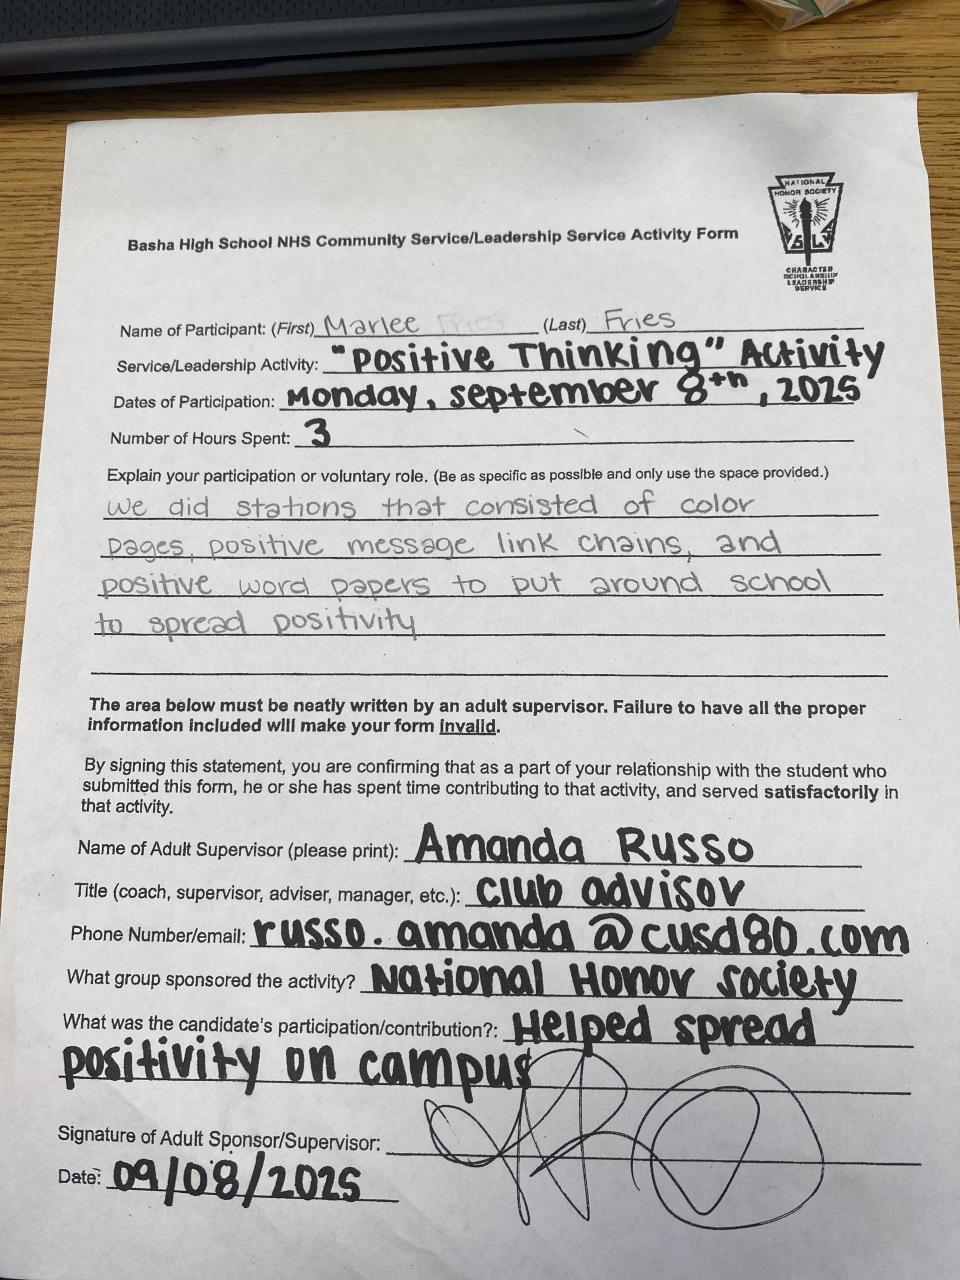 NATIONAL
HONOR SOCIETY
CHARACTER
SCHOLARSHIP
LEADERSHIP
SERVICE
Basha High School NHS Community Service/Leadership Service Activity Form
Name of Participant: (First) Marlee Fries (Last) Fries
Service/Leadership Activity: "Positive Thinking" Activity
Dates of Participation: Monday, september 8th, 2025
Number of Hours Spent: 3
Explain your participation or voluntary role. (Be as specific as possible and only use the space provided.)
we did stations that consisted of color
pages, positive message link chains, and
positive word papers to put around school
to spread positivity
The area below must be neatly written by an adult supervisor. Failure to have all the proper
information included will make your form invalid.
By signing this statement, you are confirming that as a part of your relationship with the student who
submitted this form, he or she has spent time contributing to that activity, and served satisfactorily in
that activity.
Name of Adult Supervisor (please print): Amanda Russo
Title (coach, supervisor, adviser, manager, etc.): club advisor
Phone Number/email: russo.amanda@cusd80.com
What group sponsored the activity? National Honor society
What was the candidate's participation/contribution?: Helped spread
positivity on campus
Signature of Adult Sponsor/Supervisor:
Date: 09/08/2025